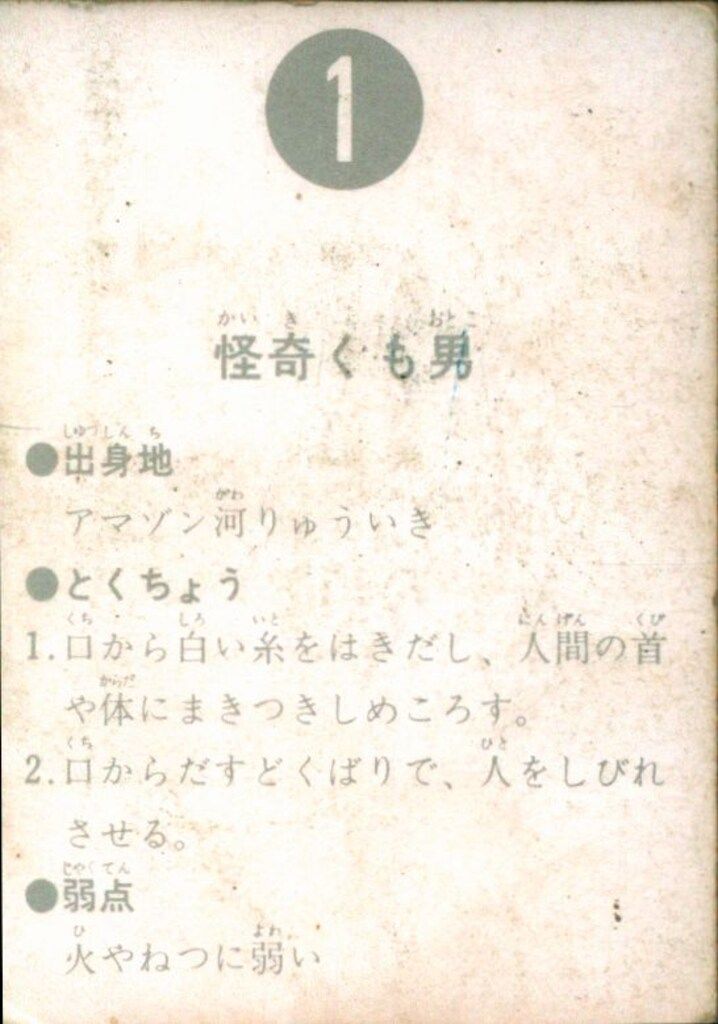 1
怪奇くも男
●出身地
アマゾン河りゅういき
●とくちょう
1.口から白い糸をはきだし、人間の首
や体にまきつきしめころす。
2.口からだすどくばりで、人をしびれ
させる。
●弱点
火やねつに弱い